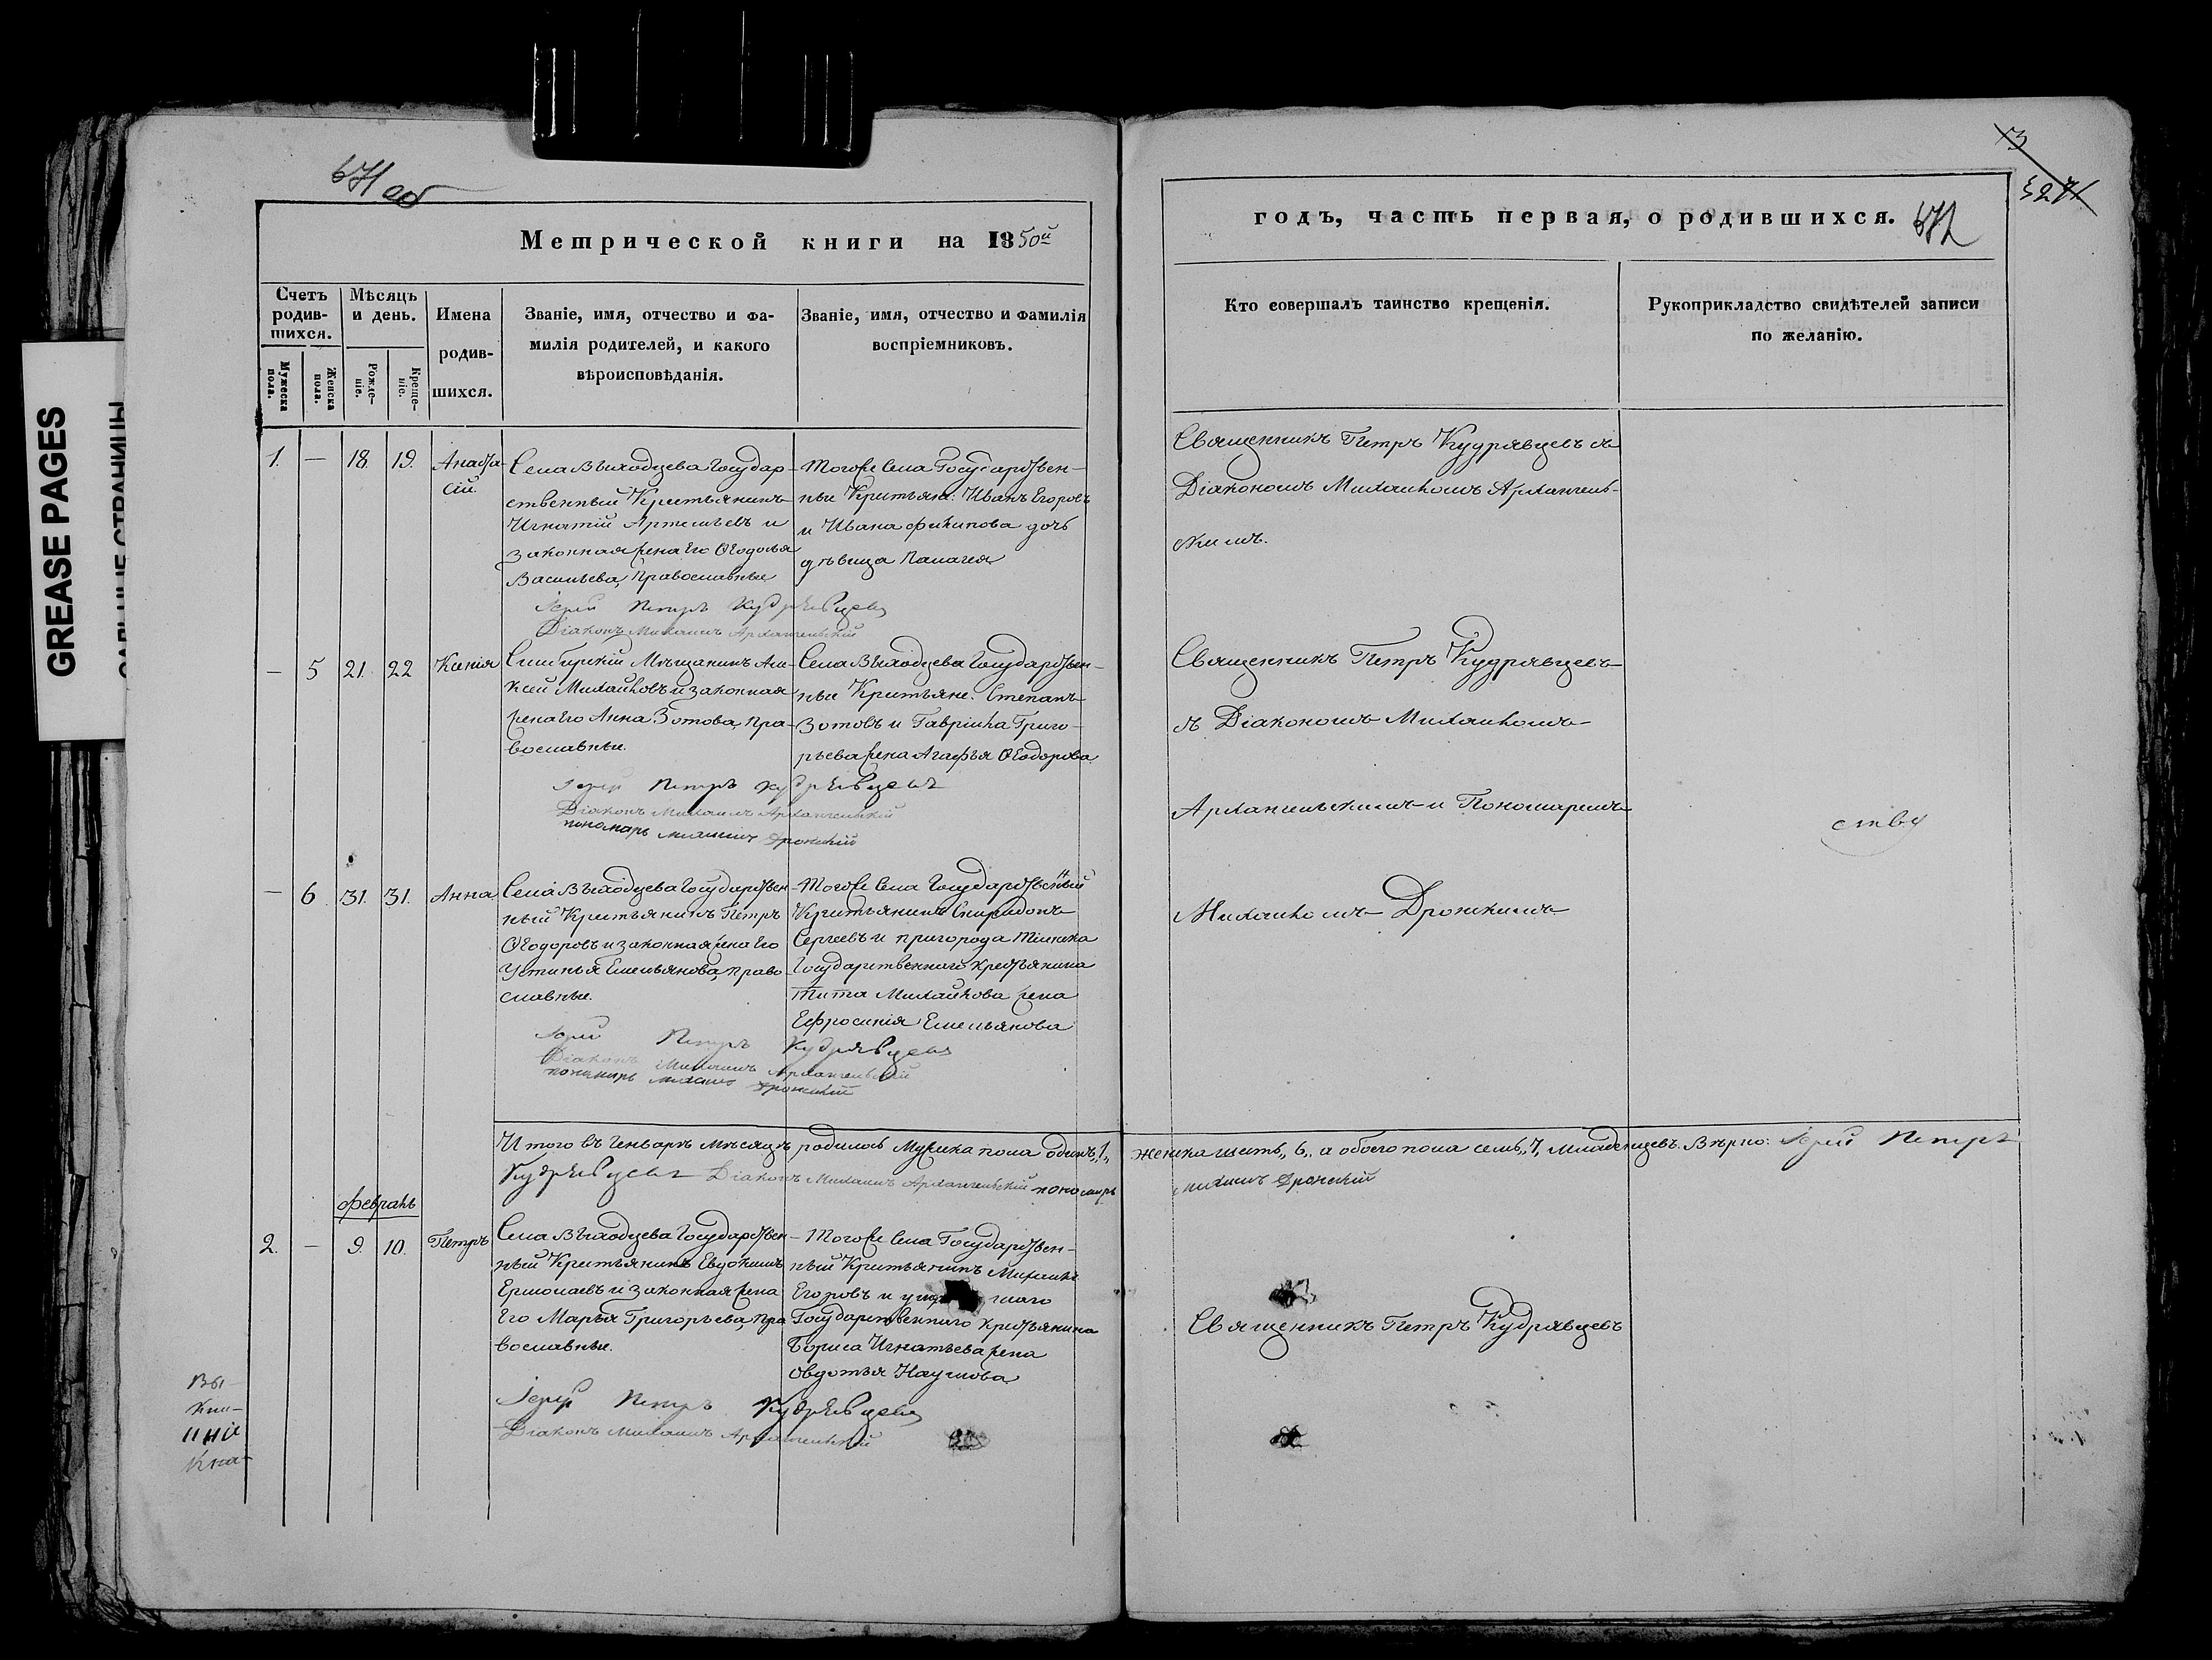 GREASE PAGES
671 об
Метрической книги на 1850й
Счетъ родив-шихся.
Мужеска пола.
Женска пола.
Мѣсяцъ и день.
Рожде-ніе.
Креще-ніе.
Имена родив-шихся.
Званіе, имя, отчество и фа-
милія родителей, и какого
вѣроисповѣданія.
Званіе, имя, отчество и фамилія
воспріемниковъ.
1. — 18. 19. Анаста-
сій.
Села Выходцева Государ-
ственный Крестьянинъ
Игнатій Артемьевъ и
законная жена Его Ѳеодосья
Васильева, православные
Тогоже Села Государствен-
ные Крестьяне: Иванъ Егоровъ
и Ивана Филипова дочь
дѣвица Палагея
Іерей Петръ Кудрявцевъ
Діаконъ Михаилъ Архангельскій
— 5 21. 22 Ксенія
Симбирскій Мѣщанинъ Але-
ксей Михайловъ и законная
жена Его Анна Зотова, пра-
вославные.
Села Выходцева Государствен-
ные Крестьяне: Степанъ
Зотовъ и Гавріила Григо-
рьева жена Агафья Ѳеодорова
Іерей Петръ Кудрявцевъ
Діаконъ Михаилъ Архангельскій
пономарь Михаилъ Дронскій
— 6. 31. 31. Анна
Села Выходцева Государствен-
ный Крестьянинъ Петръ
Ѳеодоровъ и законная жена Его
Устинья Емельянова, право-
славные.
Тогоже Села Государственный
Крестьянинъ Спиридонъ
Сергеевъ и пригорода Тіинска
Государственнаго Крестьянина
Тита Михайлова жена
Ефросинія Емельянова
Іерей Петръ Кудрявцевъ
Діаконъ Михаилъ Архангельскій
пономарь Михаилъ Дронскій
Итого въ Генварѣ мѣсяцѣ родилось Мужска пола одинъ, 1,
Кудрявцевъ Діаконъ Михаилъ Архангельскій пономарь
Февраль
2. — 9. 10. Петръ
Села Выходцева Государствен-
ный Крестьянинъ Евдокимъ
Ермолаевъ и законная жена
Его Марья Григорьева, пра-
вославные.
Тогоже Села Государствен-
ный Крестьянинъ Михаилъ
Егоровъ и
Государственнаго Крестьянина
Бориса Игнатьева жена
Овдотья Наумова
Іерей Петръ Кудрявцевъ
Діаконъ Михаилъ Архангельскій
3
годъ, часть первая, о родившихся.
672
Кто совершалъ таинство крещенія.
Рукоприкладство свидѣтелей записи
по желанію.
Священникъ Петръ Кудрявцевъ съ
Діакономъ Михаиломъ Архангель-
скимъ.
Священникъ Петръ Кудрявцевъ
съ Діакономъ Михаиломъ
Архангельскимъ и Пономаремъ
Михаиломъ Дронскимъ
ству
женска шесть, 6, а обоего пола семь, 7, младенцевъ. Вѣрно: Іерей Петръ
Михаилъ Дронскій
Священникъ Петръ Кудрявцевъ